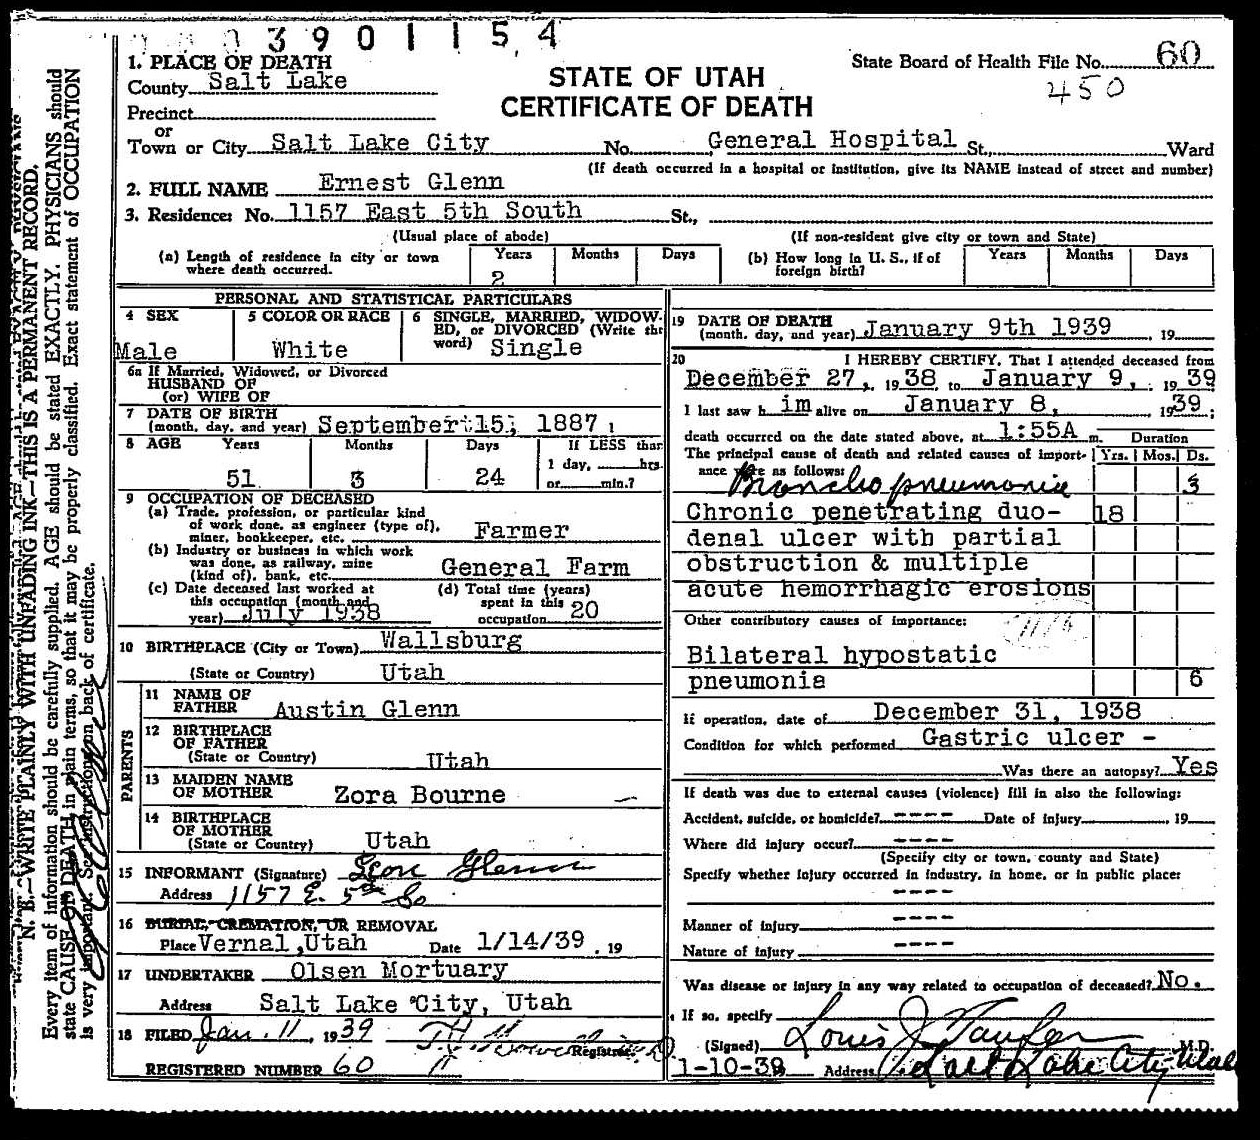 3901154
1. PLACE OF DEATH
County Salt Lake
Precinct
or
Town or City Salt Lake City No. General Hospital St., Ward
STATE OF UTAH
CERTIFICATE OF DEATH
State Board of Health File No. 60
450
(If death occurred in a hospital or institution, give its NAME instead of street and number)
2. FULL NAME Ernest Glenn
3. Residence: No. 1157 East 5th South St.,
(Usual place of abode) (If non-resident give city or town and State)
(a) Length of residence in city or town where death occurred. Years 2 Months Days
(b) How long in U. S., if of foreign birth? Years Months Days
PERSONAL AND STATISTICAL PARTICULARS
4 SEX Male
5 COLOR OR RACE White
6 SINGLE, MARRIED, WIDOWED, or DIVORCED (Write the word) Single
6a If Married, Widowed, or Divorced
HUSBAND OF
(or) WIFE OF
7 DATE OF BIRTH
(month, day, and year) September 15, 1887
8 AGE Years 51 Months 3 Days 24
If LESS than 1 day, hrs. or min.?
9 OCCUPATION OF DECEASED
(a) Trade, profession, or particular kind
of work done, as engineer (type of),
miner, bookkeeper, etc. Farmer
(b) Industry or business in which work
was done, as railway, mine
(kind of), bank, etc. General Farm
(c) Date deceased last worked at
this occupation (month and
year) July 1938
(d) Total time (years)
spent in this
occupation 20
10 BIRTHPLACE (City or Town) Wallsburg
(State or Country) Utah
PARENTS
11 NAME OF
FATHER Austin Glenn
12 BIRTHPLACE
OF FATHER
(State or Country) Utah
13 MAIDEN NAME
OF MOTHER Zora Bourne
14 BIRTHPLACE
OF MOTHER
(State or Country) Utah
15 INFORMANT (Signature) Glenn
Address 1157 E. 5th So
16 BURIAL, CREMATION, OR REMOVAL
Place Vernal, Utah Date 1/14/39, 19
17 UNDERTAKER Olsen Mortuary
Address Salt Lake City, Utah
18 FILED Jan. 11, 1939
Registrar
REGISTERED NUMBER 60
19 DATE OF DEATH
(month, day, and year) January 9th 1939, 19
20 I HEREBY CERTIFY, That I attended deceased from
December 27, 1938 to January 9, 1939
I last saw him alive on January 8, 1939;
death occurred on the date stated above, at 1:55A m. Duration
The principal cause of death and related causes of import- Yrs. Mos. Ds.
ance were as follows:
Bronchopneumonia 3
Chronic penetrating duo- 18
denal ulcer with partial
obstruction & multiple
acute hemorrhagic erosions
Other contributory causes of importance:
Bilateral hypostatic
pneumonia 6
If operation, date of December 31, 1938
Condition for which performed Gastric ulcer -
Was there an autopsy? Yes
If death was due to external causes (violence) fill in also the following:
Accident, suicide, or homicide? ---- Date of injury , 19
Where did injury occur? ----
(Specify city or town, county and State)
Specify whether injury occurred in industry, in home, or in public place:
----
Manner of injury ----
Nature of injury ----
Was disease or injury in any way related to occupation of deceased? No.
If so, specify
(Signed) Louis J. M.D.
1-10-39 Address Salt Lake City, Utah
N. B.—WRITE PLAINLY WITH UNFADING INK—THIS IS A PERMANENT RECORD.
Every item of information should be carefully supplied. AGE should be stated EXACTLY. PHYSICIANS should
state CAUSE OF DEATH in plain terms, so that it may be properly classified. Exact statement of OCCUPATION
is very important. See instructions on back of certificate.